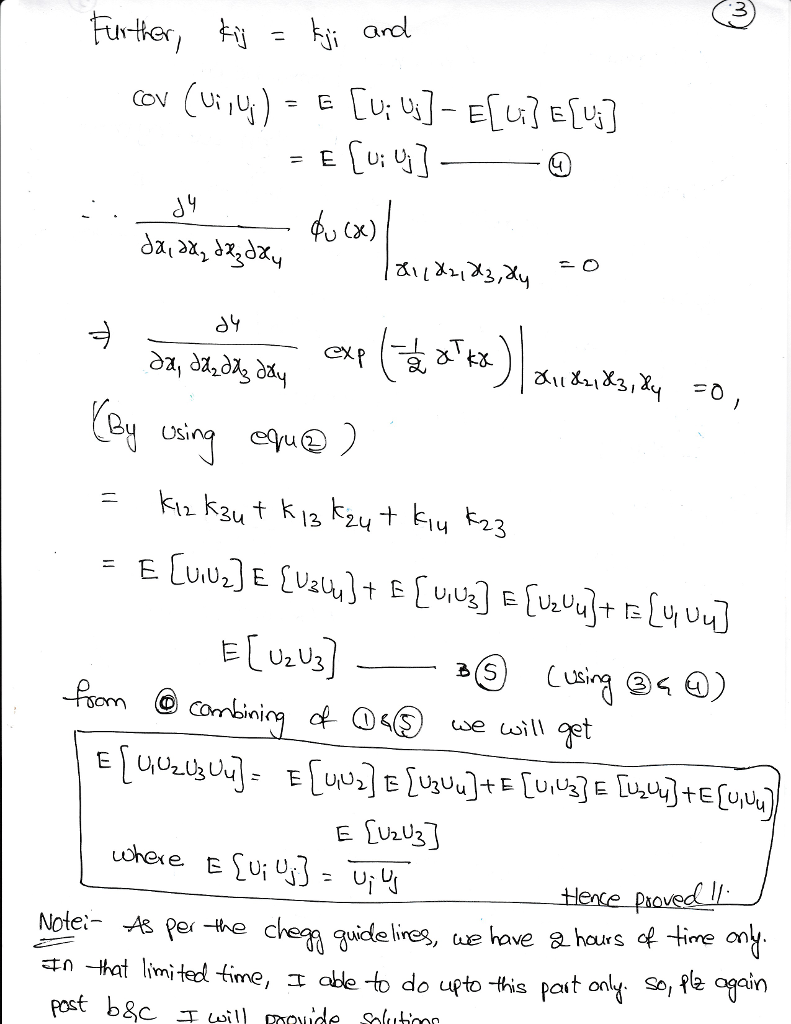 3
Further, kij = kji and
cov (Ui, Uj) = E [Ui Uj] - E[Ui] E[Uj]
= E [Ui Uj] ——— ④
∴ ∂4 / ∂x1 ∂x2 ∂x3 ∂x4 ϕU (x) | x1, x2, x3, x4 = 0
⇒ ∂4 / ∂x1 ∂x2 ∂x3 ∂x4 exp (-1/2 xT kx) | x1, x2, x3, x4 = 0,
(By using equ ②)
= K12 K34 + K13 K24 + K14 K23
= E [U1U2] E [U3U4] + E [U1U3] E [U2U4] + E [U1 U4]
E [U2U3] ——— ⑤ (using ③ & ④)
from combining of ① & ⑤ we will get
E [U1U2U3U4] = E [U1U2] E [U3U4] + E [U1U3] E [U2U4] + E [U1U4]
E [U2U3]
where E [Ui Uj] = \overline{Ui Uj}
Hence proved //.
Note:- As per the chegg guidelines, we have 2 hours of time only.
In that limited time, I able to do upto this part only. so, plz again
post b&c I will provide solutions